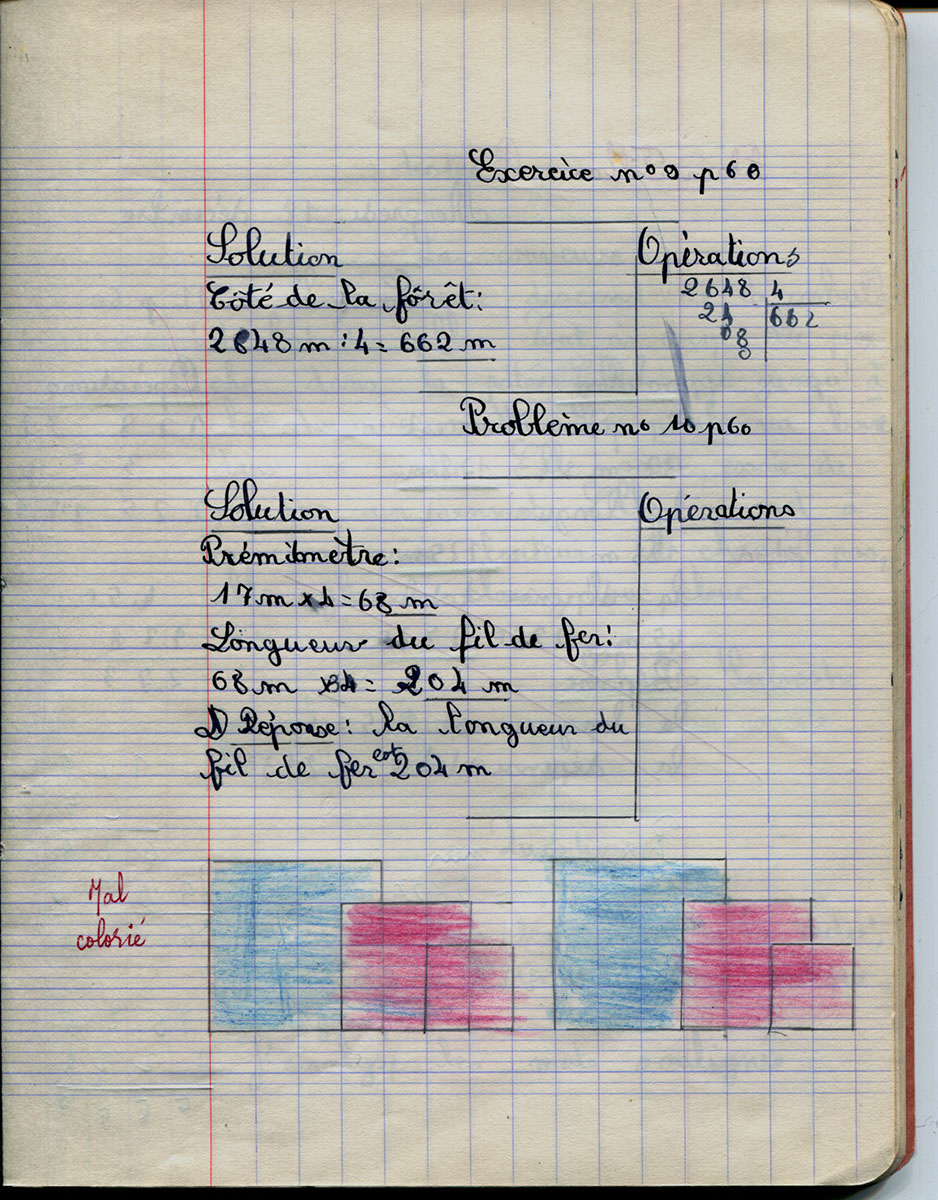 Exercice n° 9 p 60
Solution
Côté de la fôrêt:
2648 m : 4 = 662 m
Opérations
2648 4
24 662
08
0
Problème n° 10 p60
Solution
Prémimètre:
17 m x 4 = 68 m
Longueur du fil de fer:
68 m x 3 = 204 m
Réponse: la longueur du
fil de fer est 204 m
Opérations
Mal
colorié